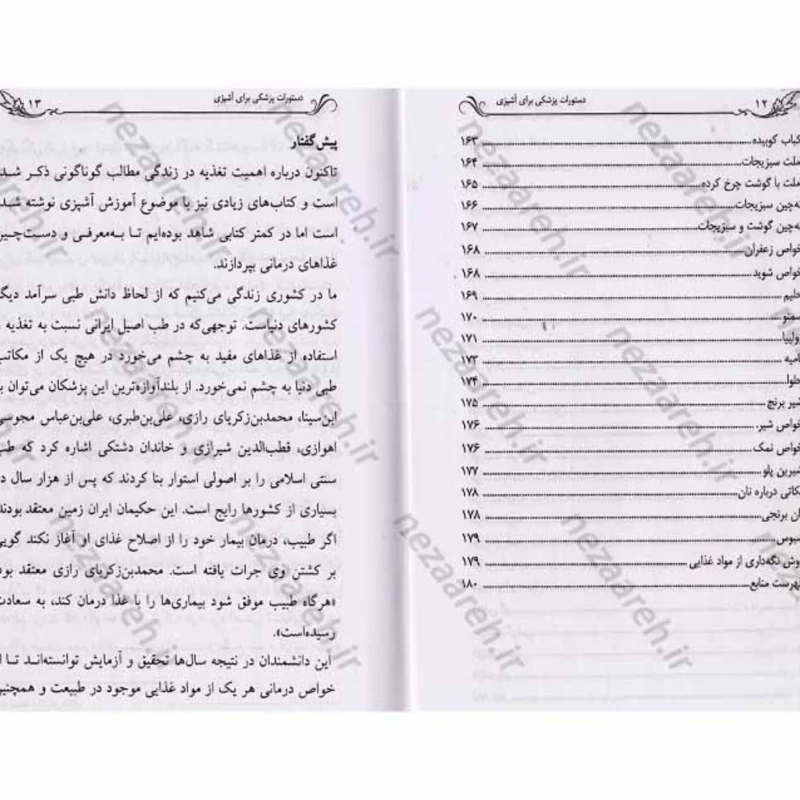 ۱۲
دستورات پزشکی برای آشپزی
کباب کوبیده ۱۶۳
املت سبزیجات ۱۶۴
املت با گوشت چرخ کرده ۱۶۵
ته‌چین سبزیجات ۱۶۶
ته‌چین گوشت و سبزیجات ۱۶۷
خواص زعفران ۱۶۸
خواص شوید ۱۶۸
حلیم ۱۶۹
سمنو ۱۷۰
۱۷۱
۱۷۳
حلوا ۱۷۴
شیر برنج ۱۷۵
خواص شیر ۱۷۶
خواص نمک ۱۷۶
شیرین پلو ۱۷۷
نکاتی درباره نان ۱۷۸
نان برنجی ۱۷۸
سبوس ۱۷۹
روش نگه‌داری از مواد غذایی ۱۷۹
فهرست منابع ۱۸۰
دستورات پزشکی برای آشپزی
۱۳
پیش‌گفتار
تاکنون درباره اهمیت تغذیه در زندگی مطالب گوناگونی ذکر شد
است و کتاب‌های زیادی نیز با موضوع آموزش آشپزی نوشته شد
است اما در کمتر کتابی شاهد بوده‌ایم تا به‌معرفی و دست‌چین
غذاهای درمانی بپردازند.
ما در کشوری زندگی می‌کنیم که از لحاظ دانش طبی سرآمد دیگ
کشورهای دنیاست. توجهی‌که در طب اصیل ایرانی نسبت به تغذیه و
استفاده از غذاهای مفید به چشم می‌خورد در هیچ یک از مکاتب
طبی دنیا به چشم نمی‌خورد. از بلندآوازه‌ترین این پزشکان می‌توان به
ابن‌سینا، محمدبن‌زکریای رازی، علی‌بن‌طبری، علی‌بن‌عباس مجوسی
اهوازی، قطب‌الدین شیرازی و خاندان دشتکی اشاره کرد که طب
سنتی اسلامی را بر اصولی استوار بنا کردند که پس از هزار سال در
بسیاری از کشورها رایج است. این حکیمان ایران زمین معتقد بودند
اگر طبیب، درمان بیمار خود را از اصلاح غذای او آغاز نکند گویی
بر کشتن وی جرات یافته است. محمدبن‌زکریای رازی معتقد بود
«هرگاه طبیب موفق شود بیماری‌ها را با غذا درمان کند، به سعادت
رسیده‌است».
این دانشمندان در نتیجه سال‌ها تحقیق و آزمایش توانسته‌اند تا از
خواص درمانی هر یک از مواد غذایی موجود در طبیعت و همچنین
nezaareh.ir
nezaareh.ir
nezaareh.ir
nezaareh.ir
nezaareh.ir
nezaareh.ir
nezaareh.ir
nezaareh.ir
nezaareh.ir